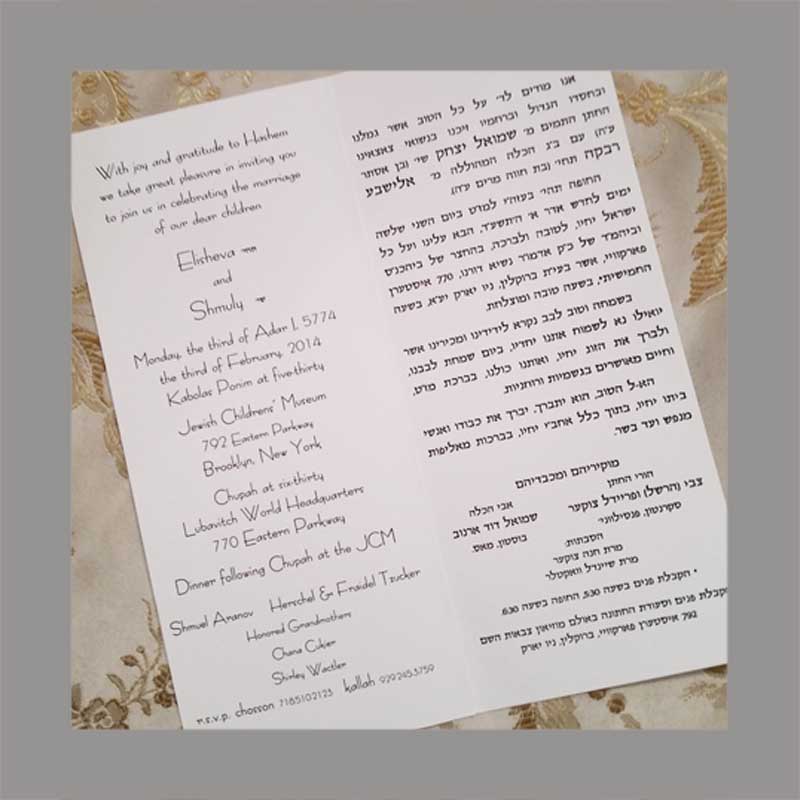 With joy and gratitude to Hashem
we take great pleasure in inviting you
to join us in celebrating the marriage
of our dear children
Elisheva
and
Shmuly
Monday, the third of Adar I, 5774
the third of February, 2014
Kabolas Ponim at five-thirty
Jewish Childrens' Museum
792 Eastern Parkway
Brooklyn, New York
Chupah at six-thirty
Lubavitch World Headquarters
770 Eastern Parkway
Dinner following Chupah at the JCM
Shmuel Aranov Herschel & Fraidel Tzucker
Honored Grandmothers
Chana Cukier
Shirley Wactler
r.s.v.p. chosson 7185102123 kallah 9292453759
אנו מודים לד' על כל הטוב אשר גמלנו
ובחסדו הגדול וברחמיו זיכנו בנשואי צאצאינו
החתן התמים מ' שמואל יצחק שי' (בן אסתר
ע"ה) עם ב"ג הכלה המהוללה מ' אלישבע
רבקה תחי' (בת חווה מרים ע"ה).
החופה תהי' בעזה"י למז"ט ביום השני שלשה
ימים לחדש אדר א' ה'תשע"ד, הבא עלינו ועל כל
ישראל יחיו, לטובה ולברכה, בהחצר של ביהכנ"ס
וביהמ"ד של כ"ק אדמו"ר נשיא דורנו, 770 איסטערן
פארקוויי, אשר בעי"ת ברוקלין, ניו יארק יע"א, בשעה
החמישית*, בשעה טובה ומוצלחת.
בשמחה וטוב לבב נקרא לידידינו ומכירינו אשר
יואילו נא לשמוח אתנו יחדיו, ביום שמחת לבבנו,
ולברך את הזוג יחיו, ואותנו כולנו, בברכת מזט,
וחיים מאושרים בגשמיות ורוחניות.
הא-ל הטוב, הוא יתברך, יברך את כבודו ואנשי
ביתו יחיו, בתוך כלל אחב"י יחיו, בברכות מאליפות
מנפש ועד בשר.
מוקיריהם ומכבדיהם
הורי החתן
צבי (הרשל) ופריידל צוקער
סקרנטון, פנסילווני'
אבי הכלה
שמואל דוד ארנוב
בוסטון, מאס.
הסבתות:
מרת חנה צוקער
מרת שיינדל וואקטלר
* הקבלת פנים בשעה 5:30, החופה בשעה 6:30.
קבלת פנים וסעודת החתונה באולם מוזיאון צבאות השם
792 איסטערן פארקוויי, ברוקלין, ניו יארק